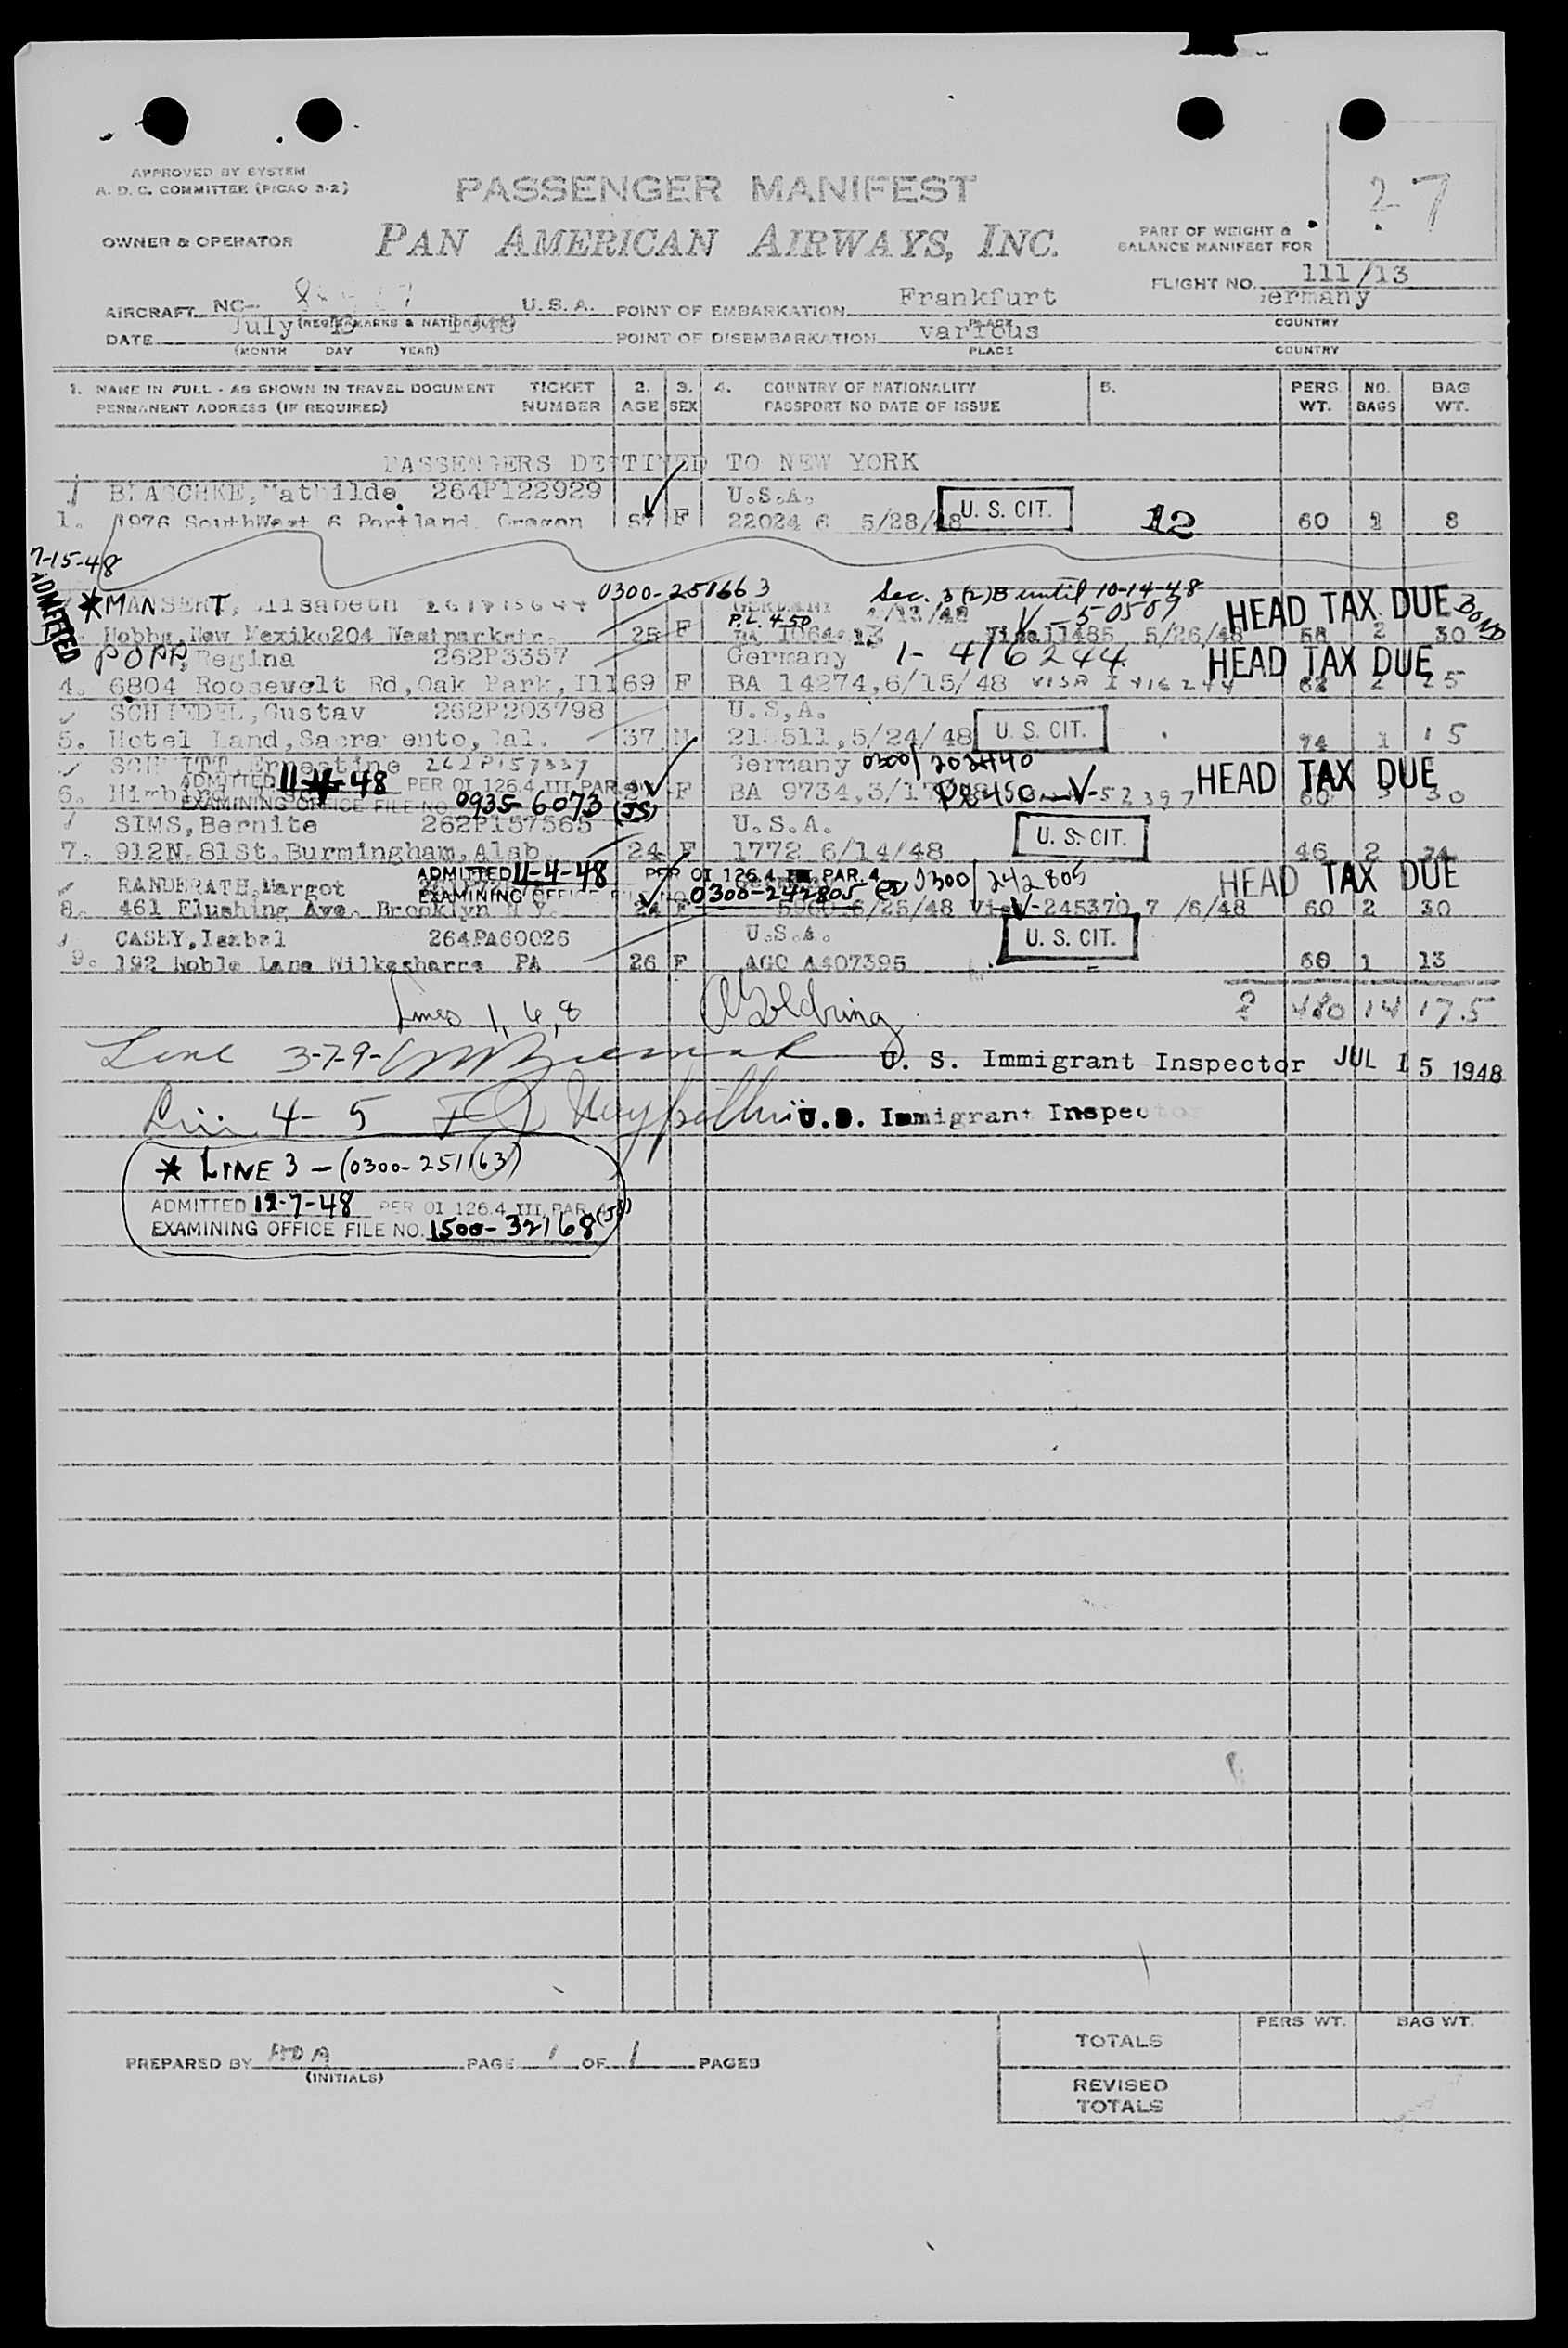 APPROVED BY SYSTEM
A. D. C. COMMITTEE (PICAO 3-2)
PASSENGER MANIFEST
27
OWNER & OPERATOR
PAN AMERICAN AIRWAYS, INC.
PART OF WEIGHT &
BALANCE MANIFEST FOR
FLIGHT NO. 111/13
AIRCRAFT NC- U.S.A. POINT OF EMBARKATION Frankfurt Germany
(REGIS. MARKS & NATIONALITY) PLACE COUNTRY
DATE July 1948 POINT OF DISEMBARKATION various
(MONTH DAY YEAR) PLACE COUNTRY
1. NAME IN FULL - AS SHOWN IN TRAVEL DOCUMENT TICKET 2. 3. 4. COUNTRY OF NATIONALITY 5. PERS. NO. BAG
PERMANENT ADDRESS (IF REQUIRED) NUMBER AGE SEX PASSPORT NO DATE OF ISSUE WT. BAGS WT.
PASSENGERS DESTINED TO NEW YORK
BLASCHKE, Mathilde 264P122929 U.S.A.
1. 1976 SouthWest 6 Portland, Oregon 57 F 22024 6 5/28/48 U. S. CIT. 12 60 1 8
7-15-48
ADMITTED
*MANSERT, Elisabeth 0300-251663 GERMANY 4/13/48 Sec. 3(2)B until 10-14-48 V-50507 HEAD TAX DUE BOND
Hobbs, New Mexiko 204 Westparkstr. 25 F P.L. 450 BA 1064 Visa 11485 5/26/48 58 2 30
POPP, Regina 262P3357 Germany I-416244 HEAD TAX DUE
4. 6804 Roosewelt Rd, Oak Park, Ill 69 F BA 14274, 6/15/48 VISA I 416244 62 2 25
SCHIEDEL, Gustav 262P203798 U.S.A.
5. Hotel Land, Sacramento, Cal. 37 M 511, 5/24/48 U. S. CIT. 74 1 15
SCHMITT, Ernestine 262P157337 Germany 0300/202440 HEAD TAX DUE
ADMITTED 11-4-48 PER OI 126.4 III PAR.
6. F BA 9734, 3/17 PL 450 V-52397 60 30
EXAMINING OFFICE FILE NO. 0935-6073 (JS)
SIMS, Bernite 262P157565 U.S.A.
7. 912N. 81St, Burmingham, Alab 24 F 1772 6/14/48 U. S. CIT. 46 2 24
RANDERATH, Margot ADMITTED 11-4-48 PER OI 126.4 III PAR. 4 0300/242805 HEAD TAX DUE
EXAMINING OFFICE FILE NO. 0300-242805 (JS)
8. 461 Flushing Ave. Brooklyn N.Y. 24 F 6/25/48 Visa V-245370, 7/6/48 60 2 30
CASEY, Isabel 264PA60026 U.S.A.
9. 192 Noble Lane Wilkesbarre PA 26 F AGO A407395 U. S. CIT. 60 1 13
Lines 1, 6, 8 8 480 14 175
Line 3-7-9- U. S. Immigrant Inspector JUL 15 1948
Line 4-5 U.S. Immigrant Inspector
* LINE 3 - (0300-251163)
ADMITTED 12-7-48 PER OI 126.4 III, PAR. 4 (JS)
EXAMINING OFFICE FILE NO. 1500-32168
TOTALS PERS WT. BAG WT.
PREPARED BY PAGE 1 OF 1 PAGES
(INITIALS)
REVISED
TOTALS